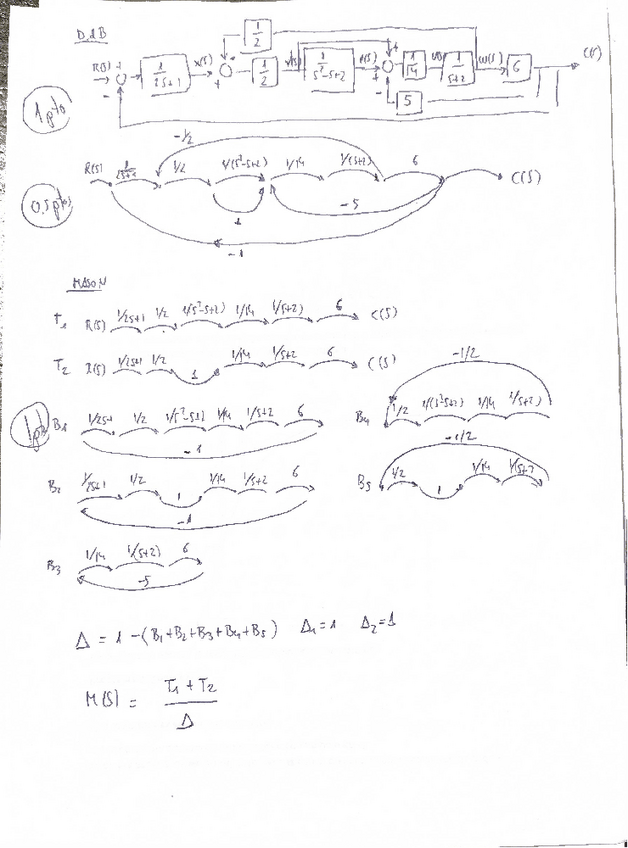 D.B
1/2
R(s) + 1/(2s+1) X(s) + 1/2 Y(s) 1/(s²-s+2) + 1/14 1/(s+2) W(s) 6 C(s)
- + + -
5
1 pto
-1/2
R(s) 1/2 1/(s²-s+2) 1/14 1/(s+2) 6 C(s)
0,5 pto
1 -5
-1
MASON
T1 R(s) 1/2s+1 1/2 1/(s²-s+2) 1/14 1/(s+2) 6 C(s)
T2 R(s) 1/2s+1 1/2 1 1/14 1/s+2 6 C(s)
B1 1/2 1/(s²-s+2) 1/14 1/s+2 6
-1
B4 1/2 1/(s²-s+2) 1/14 1/s+2)
-1/2
B2 1/2 1 1/14 1/s+2 6
-1
B5 1/2 1 1/14
-1/2
B3 1/14 1/(s+2) 6
-5
Δ = 1 - (B1 + B2 + B3 + B4 + B5) Δ1 = 1 Δ2 = 1
M(s) = T1 + T2
Δ